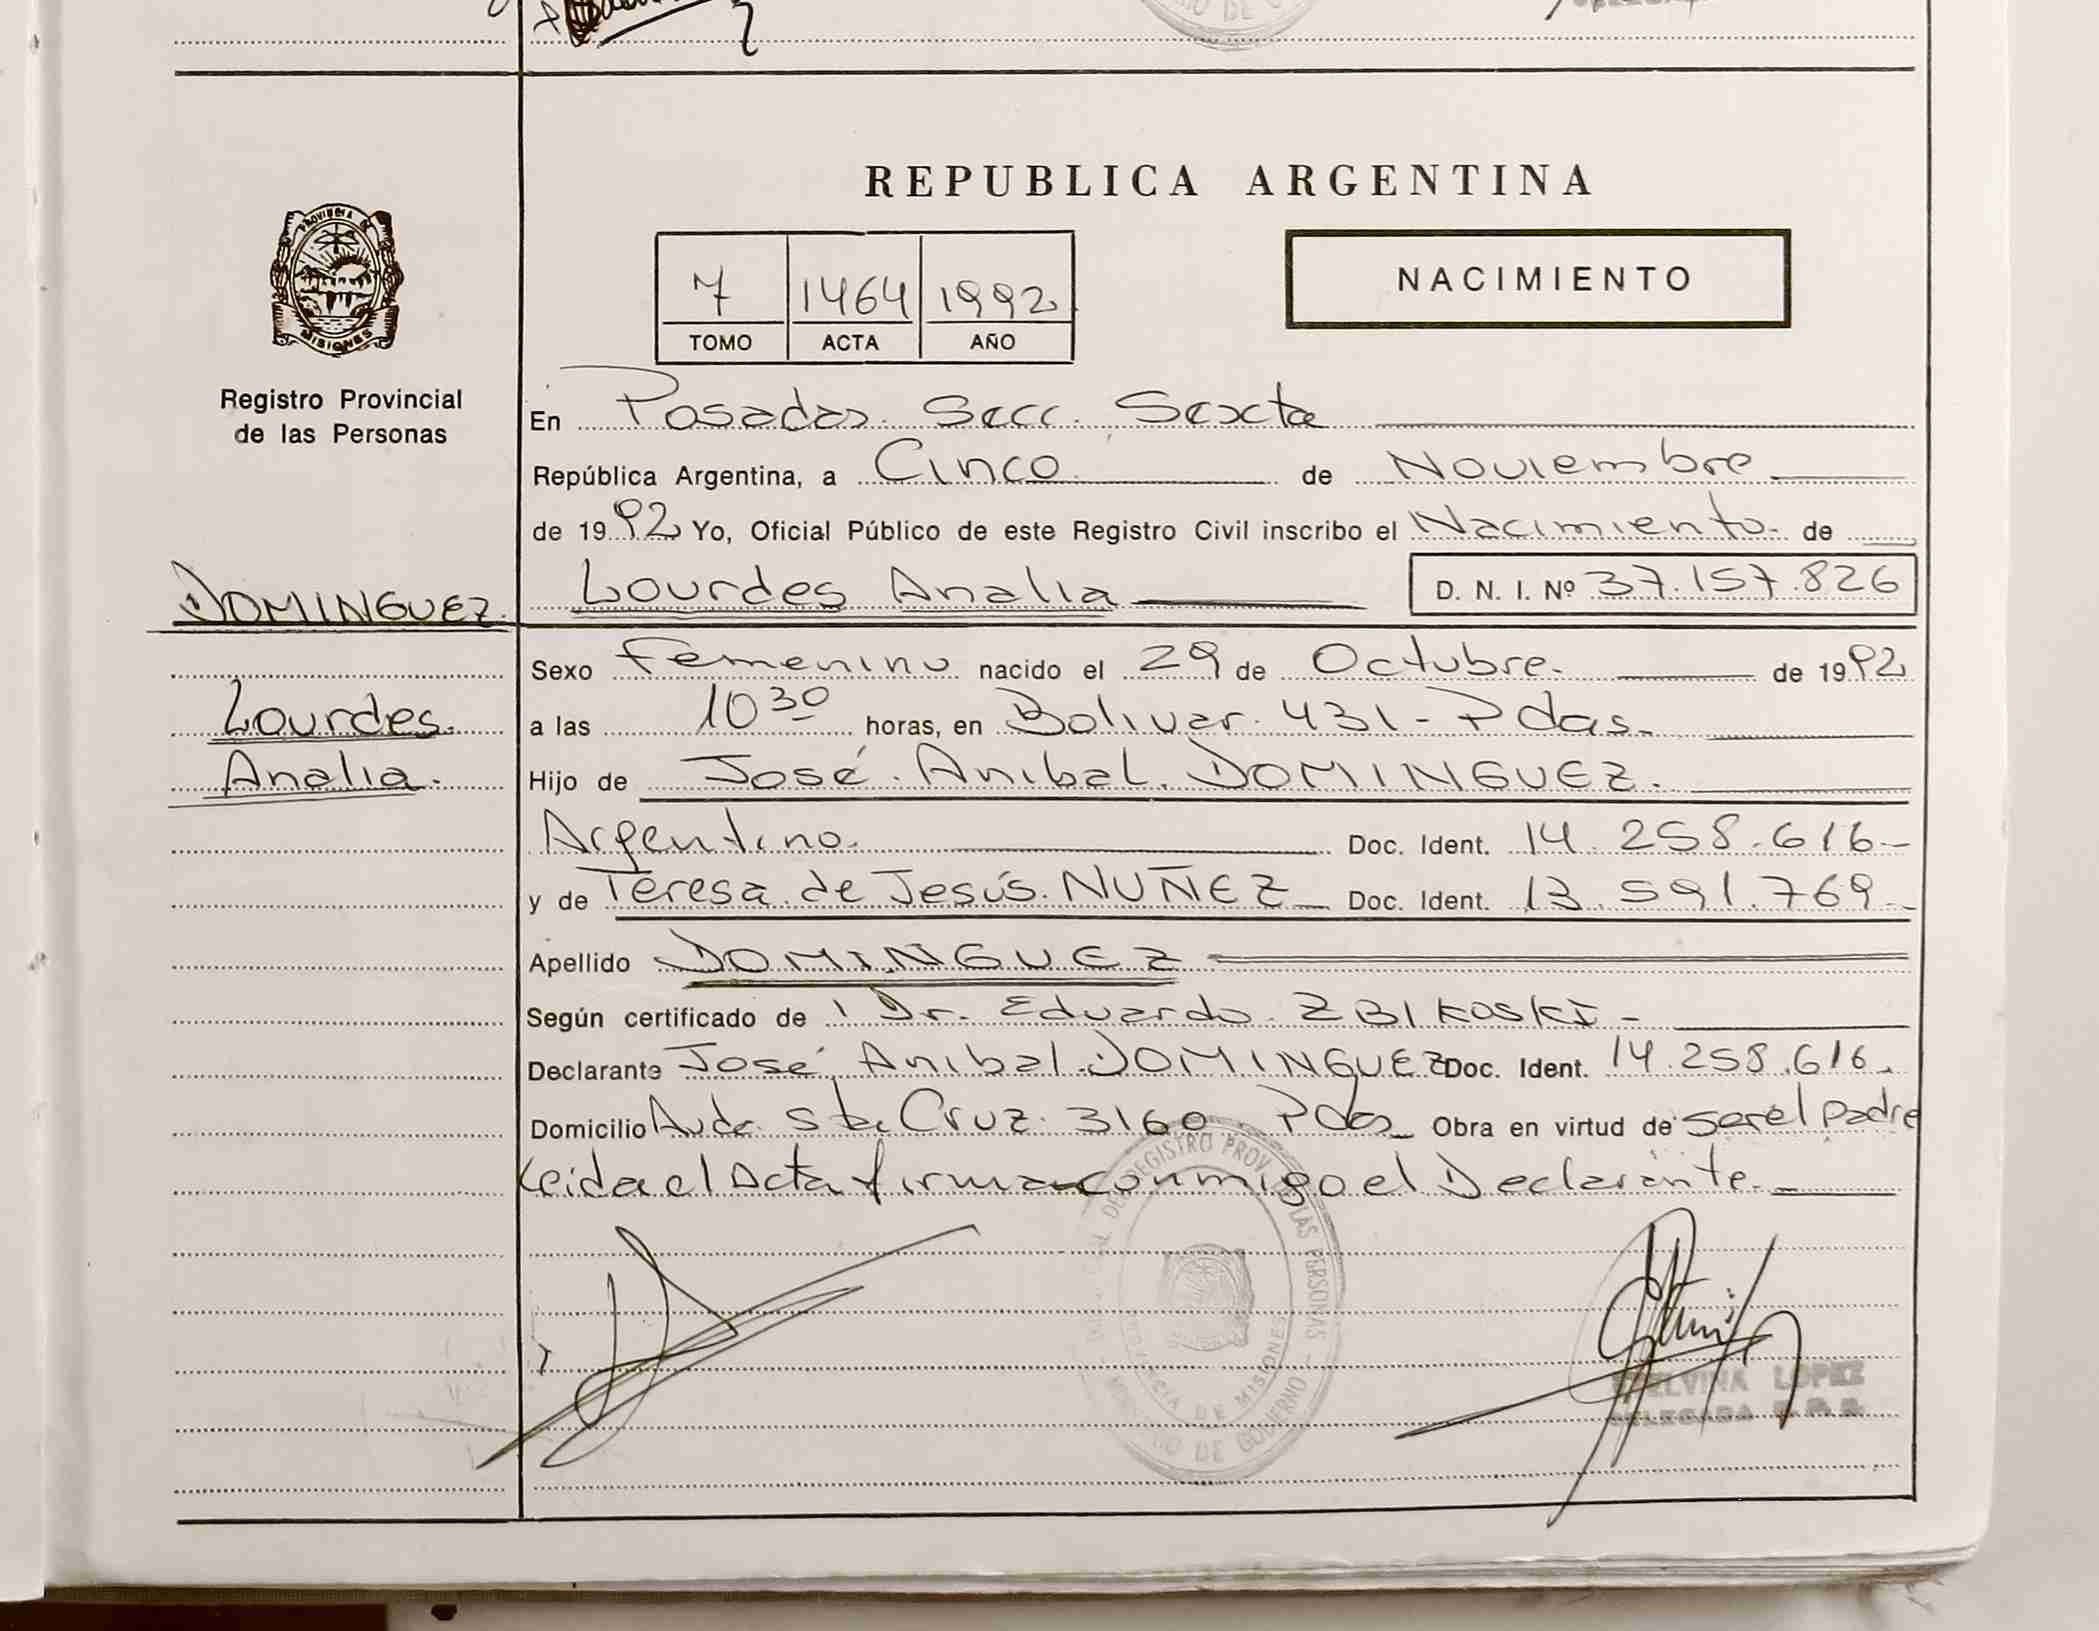 REPUBLICA ARGENTINA
PROVINCIA DE
MISIONES
Registro Provincial
de las Personas
7 1464 1992
TOMO ACTA AÑO
NACIMIENTO
En Posadas. Secc. Sexta
República Argentina, a Cinco. de Noviembre
de 1992 Yo, Oficial Público de este Registro Civil inscribo el Nacimiento. de
DOMINGUEZ.
Lourdes Analia D. N. I. Nº 37.157.826
Sexo Femenino nacido el 29 de Octubre. de 1992
Lourdes.
a las 10 30 horas, en Bolivar. 431 - Pdas.
Analia.
Hijo de José. Anibal. DOMINGUEZ.
Argentino. Doc. Ident. 14.258.616-
y de Teresa de Jesús. NUÑEZ Doc. Ident. 13.591.769-
Apellido DOMINGUEZ
Según certificado de Dr. Eduardo ZBIKOSKI -
Declarante José Anibal DOMINGUEZ Doc. Ident. 14.258.616.
Domicilio Avda. Sta Cruz. 3160 Pdas Obra en virtud de ser el padre
Leida el Acta firma conmigo el Declarante.
DEL REGISTRO PROV. LAS PERSONAS
DE GOBIERNO
DE MISIONES
LOPEZ
DELEGADA